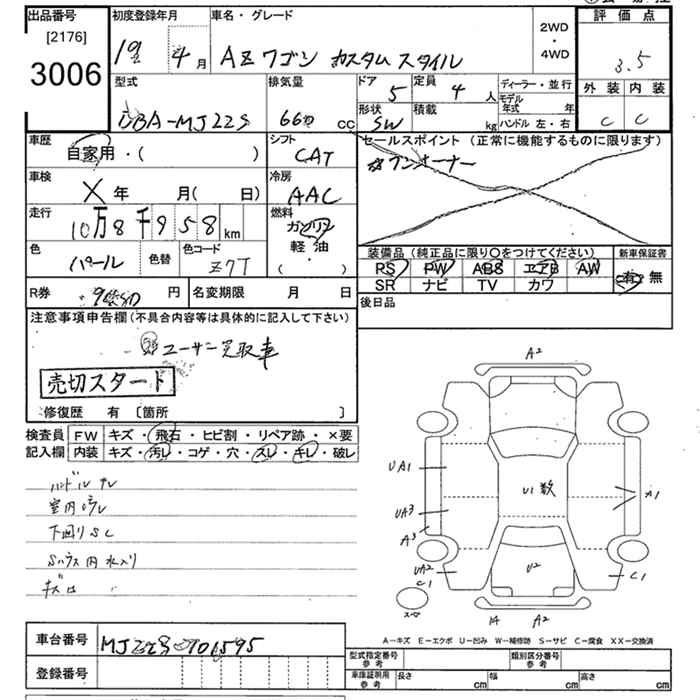 出品番号
[2176]
3006
初度登録年月
19年 4月
車名・グレード
AZワゴン カスタムスタイル
2WD
・
4WD
評価点
3.5
外装 内装
C C
型式
DBA-MJ22S
排気量
660 CC
ドア 5
形状 SW
定員 4 人
積載 kg
ディーラー・並行
モデル年式 年
ハンドル 左・右
車歴
自家用・( )
シフト
CAT
セールスポイント(正常に機能するものに限ります)
ワンオーナー
車検
X 年 月( 日)
冷房
AAC
走行
10万8千958km
燃料
ガソリン
軽油
・( )
色
パール
色替
色コード
Z7T
装備品(純正品に限り○をつけてください)
新車保証書
PS PW ABS エアB AW
SR ナビ TV カワ
有・無
R券 円
名変期限 月 日
後日品
注意事項申告欄(不具合内容等は具体的に記入して下さい)
ユーザー買取車
売切スタート
修復歴 有 [箇所 ]
検査員記入欄
FW キズ・飛石・ヒビ割・リペア跡・×要
内装 キズ・汚レ・コゲ・穴・スレ・キレ・破レ
ハンドルスレ
室内汚レ
下廻りSC
Sハウス内水入り
A2
UA1
U1 数
A1
UA3
A3
UA2
C1
U2
C1
A2
A-キズ E-エクボ U-凹み W-補修跡 S-サビ C-腐食 XX-交換済
車台番号
MJ22S-701595
登録番号
型式指定番号 参考
類別区分番号 参考
車庫証明用 参考
長さ cm 幅 cm 高さ cm